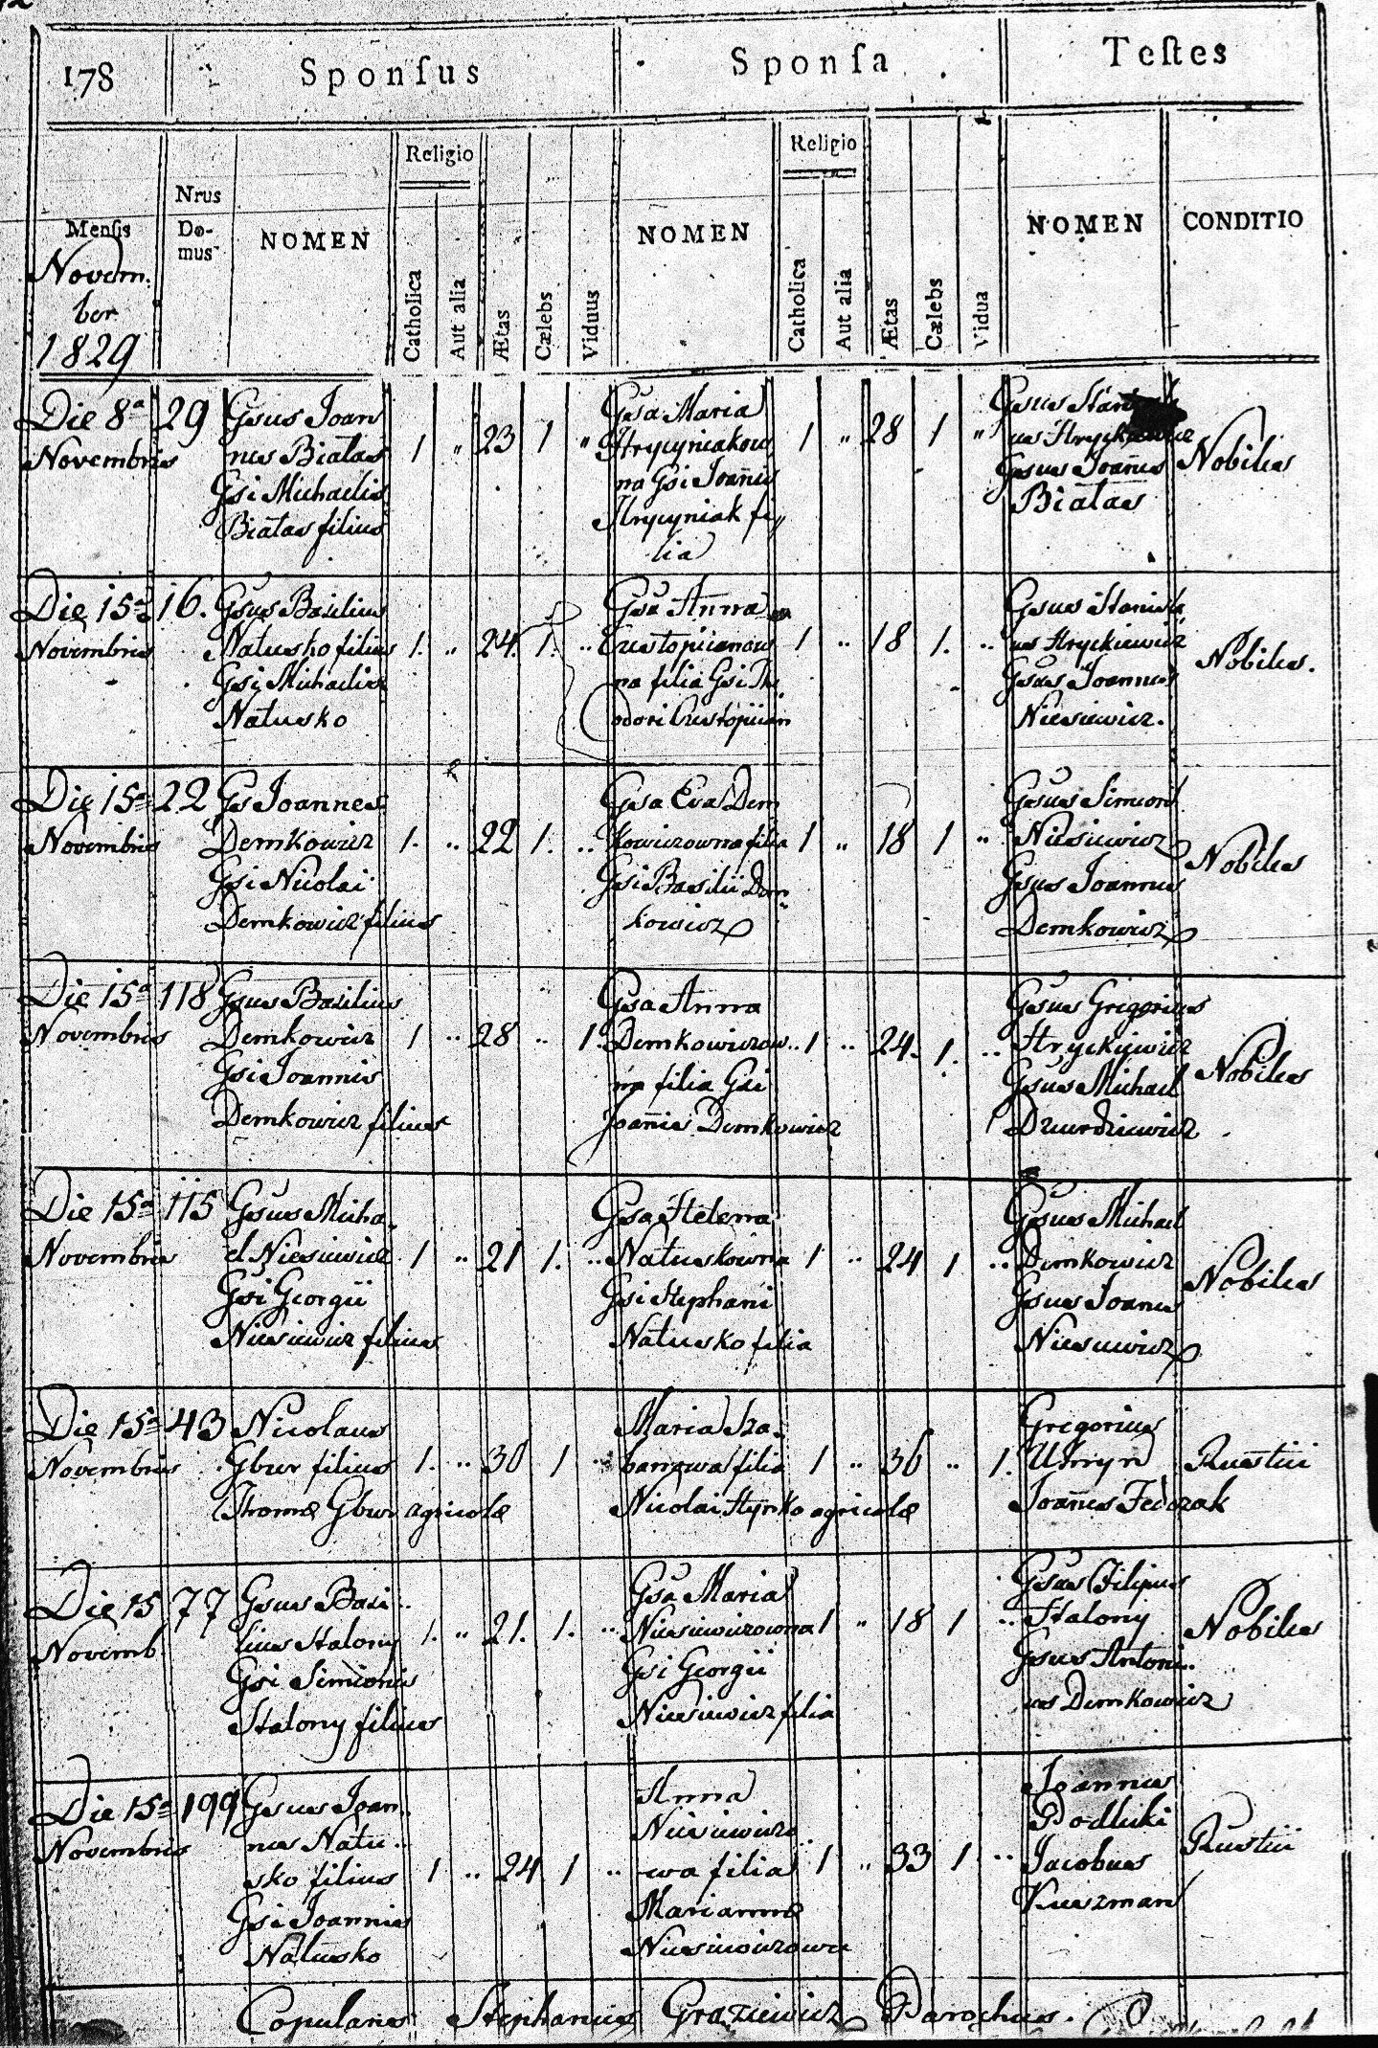 178 Sponſus Sponſa Teſtes
Religio Religio
Nrus
Menſis Do- NOMEN NOMEN NOMEN CONDITIO
mus
Catholica Aut alia Ætas Cælebs Viduus Catholica Aut alia Ætas Cælebs Vidua
Novem.
ber
1829
Die 8ª 29 Gsus Joan Gsa Maria Gsus
Novembris nes Białas 1 " 23 1 " Hrycyniakow 1 " 28 1 " Hryckiewicz Nobiles
Gsi Michaelis na Gsi Joañis Gsus Joañes
Białas filius Hrycyniak fi,, Białas
lia
Die 15ª 16. Gsus Basilius Gsa Anna Gsus Stanisla
Novembris Natusko filius 1. " 24. 1. " 1 " 18 1. " us Hryckiewicz Nobiles.
Gsi Michaelis na filia Gsi The Gsus Joannes
Natusko odori Niesiewicz.
Die 15ª 22 Gs Joannes Gsa Eva Dem Gsus Simeon
Novembris Demkowicz 1. " 22 1. " kowiczowna filia 1 " 18 1 " Niesiewicz Nobiles
Gsi Nicolai Gsi Basilii Dem Gsus Joannes
Demkowicz filius kowicz Demkowicz
Die 15ª 118 Gsus Basilius Gsa Anna Gsus Gregorius
Novembris Demkowicz 1 " 28 " 1. Demkowiczow 1 " 24. 1. " Hryckiewicz Nobiles
Gsi Joannis na filia Gsi Gsus Michael
Demkowicz filius Joañis Demkowicz Dzurdziewicz
Die 15ª 115 Gsus Micha Gsa Helena Gsus Michael
Novembris el Niesiewicz 1 " 21 1. " Natuskowna 1 " 24 1 " Demkowicz Nobiles
Gsi Georgii Gsi Stephani Gsus Joanes
Niesiewicz filius Natusko filia Niesiewicz
Die 15ª 43 Nicolaus Maria Gregorius
Novembris Gbur filius 1. " 30 1 " filia 1 " 36 " 1. Uhryn Rustici
Thomæ Gbur agricolæ Nicolai Hyrko agricolæ Joañes Fedczak
Die 15 77 Gsus Basi Gsa Maria Gsus Filipus
Novemb. lius Stalony 1. " 21. 1. " Niesiewiczowna 1 " 18 1 " Stalony Nobiles
Gsi Simeonis Gsi Georgii Gsus Antoni
Stalony filius Niesiewicz filia us Demkowicz
Die 15ª 199 Gsus Joan Anna Joannes
Novembris nes Natu Niesiewiczo Podlucki Rustici
sko filius 1 " 24 1 " wa filia 1 " 33 1 " Jacobus
Gsi Joannis Mariannæ Kuszman
Natusko Niesiewiczowa
Copulans Stephanus Graziewicz Parochus.